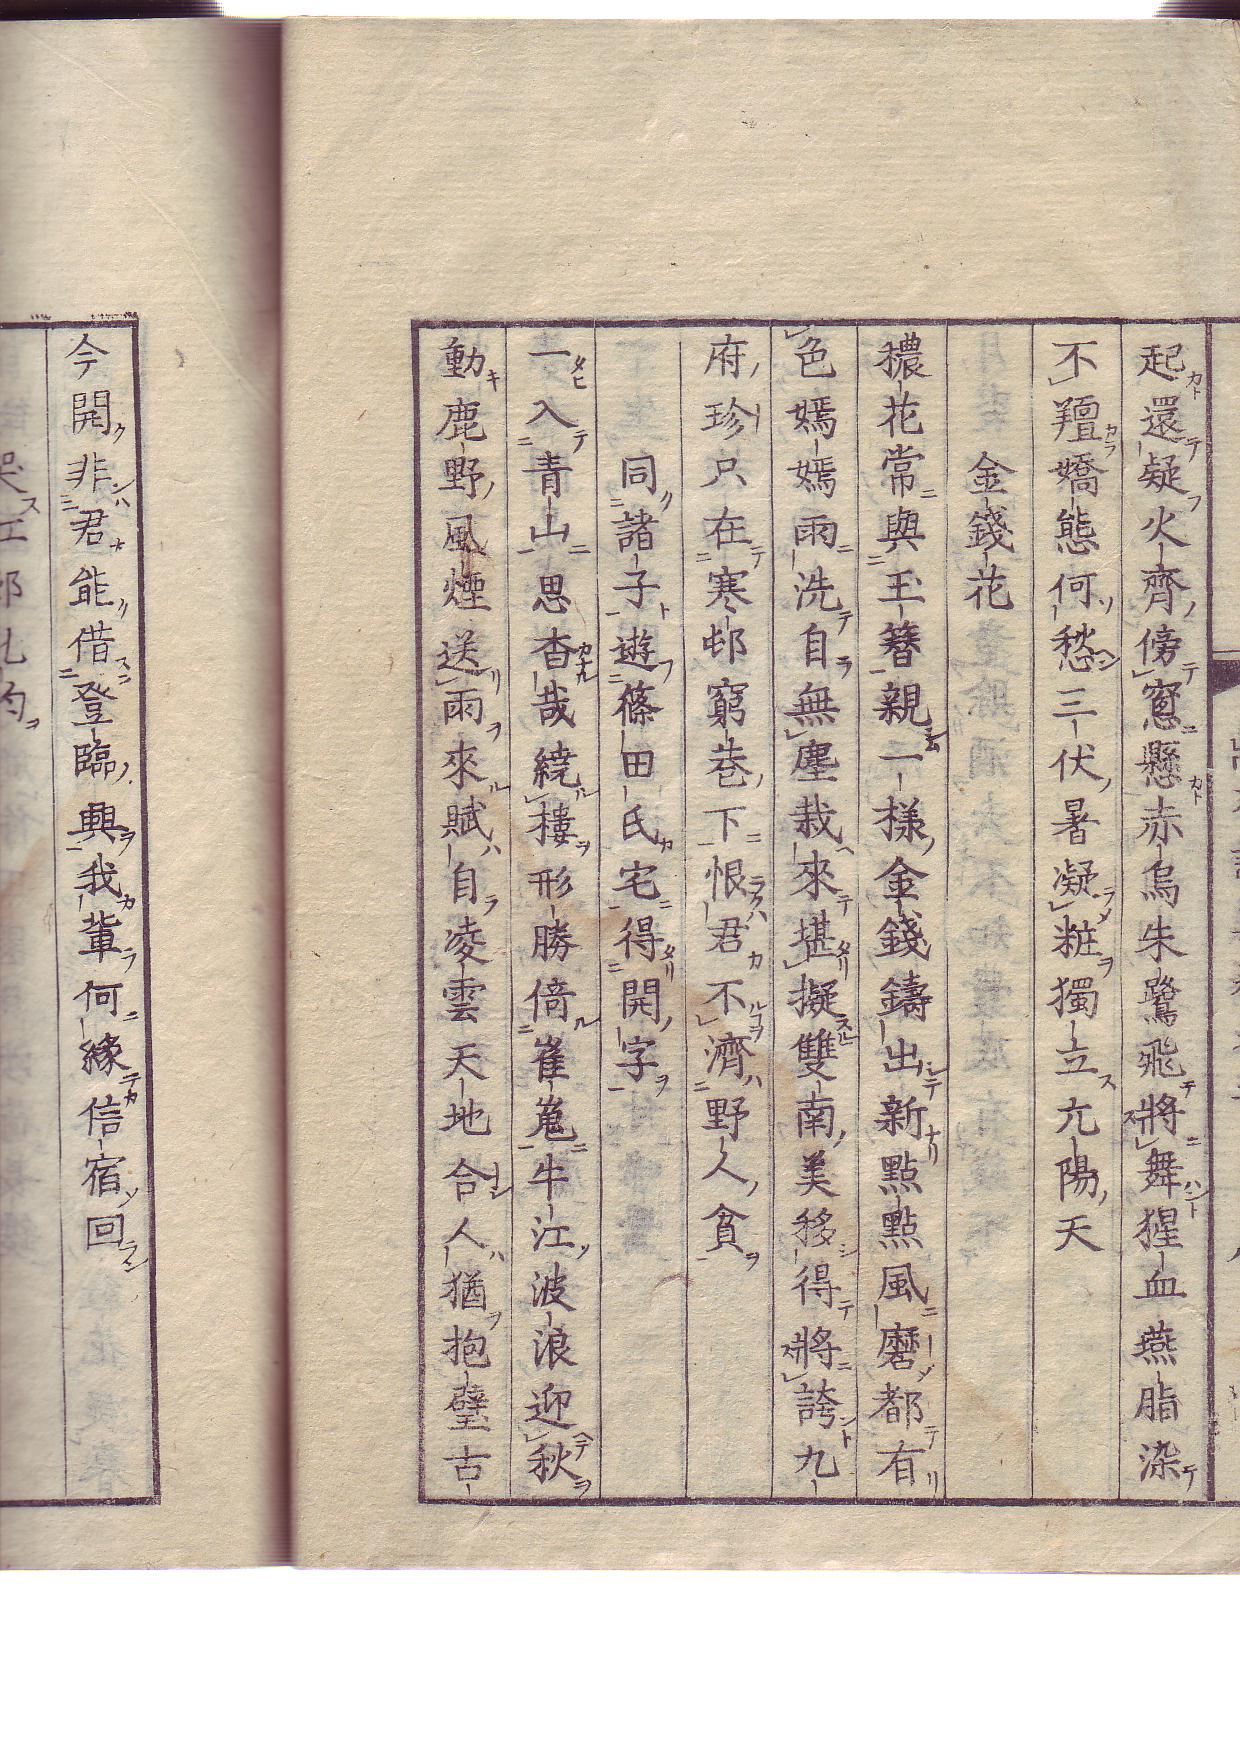 起還疑火齊傍窻懸赤烏朱鷺飛將舞猩血燕脂染
不羶嬌態何愁三伏暑凝粧獨立亢陽天
金錢花
穠花常與玉簪親一樣金錢鑄出新點點風磨都有
色嫣嫣雨洗自無塵栽來堪擬雙南美移得將誇九
府珍只在寒邨窮巷下恨君不濟野人貧
同諸子遊篠田氏宅得開字
一入青山思杳哉繞樓形勝倚崔嵬牛江波浪迎秋
動鹿野風煙送雨來賦自凌雲天地合人猶抱璧古
今開非君能借登臨興我輩何緣信宿回